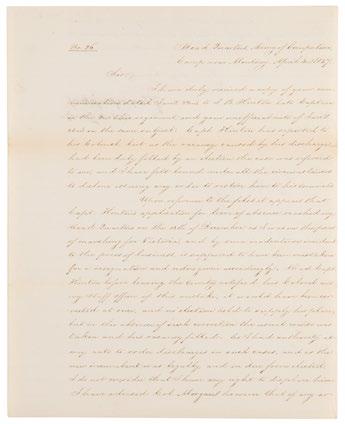 No. 26. Head Quarters Army of Occupation,
Camp near Monterey, April 1847.
Sir,
I have duly received a copy of your com
munication dated to J. B. Hunter late Captain
in the regiment and your
on the same subject. Capt. Hunter has reported to
his Colonel but as the vacancy caused by his discharge
had been duly filled by an election the case was referred
to me, and I have felt bound under all the circumstances
to decline issuing any order to restore him to his command.
Upon reference to the files it appears that
Capt. Hunter's application for leave of absence reached my
Head Quarters on the 12th of December as I was on the point
of marching for Victoria, and by some inadvertence incident
to the press of business is supposed to have been mistaken
for a resignation and acted upon accordingly. Had Capt.
Hunter before leaving the Country notified his Colonel or
my Staff officer of this mistake, it would have been cor
rected at once, and no election held to supply his place,
but in the absence of such correction the usual course was
taken and his vacancy filled. As I had authority at
any rate to order discharges in such cases, and as the
new incumbent was legally and in due form elected
I do not consider that I have any right to displace him.
I have advised Col. Morgan however that if any va